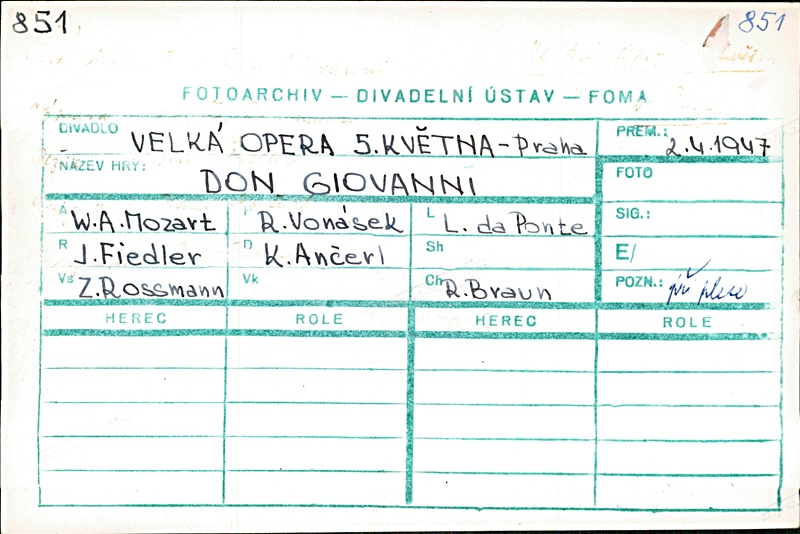 851 851
FOTOARCHIV — DIVADELNÍ ÚSTAV — FOMA
DIVADLO VELKÁ OPERA 5.KVĚTNA-Praha PREM.: 2.4.1947
NÁZEV HRY: DON GIOVANNI FOTO
A W.A.Mozart P R.Vonásek L L. da Ponte SIG.:
R J.Fiedler D K.Ančerl Sh E/
Vs Z.Rossmann Vk Ch R.Braun POZN.:
HEREC ROLE HEREC ROLE